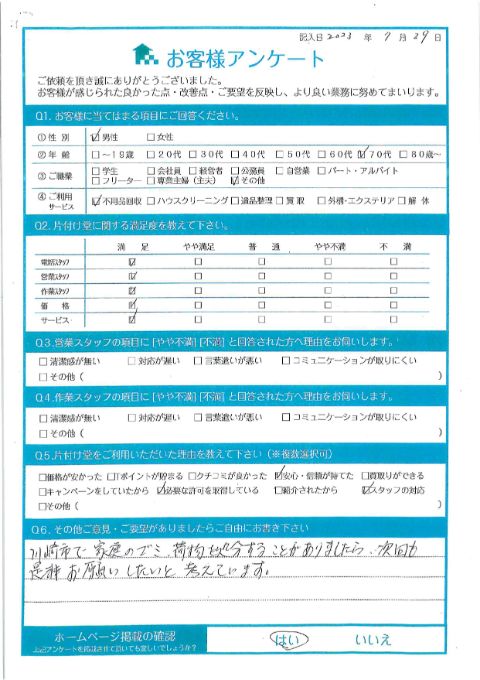 記入日 2023 年 9 月 29 日
お客様アンケート
ご依頼を頂き誠にありがとうございました。
お客様が感じられた良かった点・改善点・ご要望を反映し、より良い業務に努めてまいります。
Q1. お客様に当てはまる項目にご回答ください。
①性 別 ☑男性 □女性
②年 齢 □~19歳 □20代 □30代 □40代 □50代 □60代 ☑70代 □80歳~
③ご職業 □学生 □会社員 □経営者 □公務員 □自営業 □パート・アルバイト
□フリーター □専業主婦(主夫) ☑その他
④ご利用サービス ☑不用品回収 □ハウスクリーニング □遺品整理 □買取 □外構・エクステリア □解体
Q2. 片付け堂に関する満足度を教えて下さい。
満 足 やや満足 普 通 やや不満 不 満
電話スタッフ ☑ □ □ □ □
営業スタッフ ☑ □ □ □ □
作業スタッフ ☑ □ □ □ □
価 格 ☑ □ □ □ □
サービス ☑ □ □ □ □
Q3. 営業スタッフの項目に [やや不満] [不満] と回答された方へ理由をお伺いします。
□清潔感が無い □対応が遅い □言葉遣いが悪い □コミュニケーションが取りにくい
□その他( )
Q4. 作業スタッフの項目に [やや不満] [不満] と回答された方へ理由をお伺いします。
□清潔感が無い □対応が遅い □言葉遣いが悪い □コミュニケーションが取りにくい
□その他( )
Q5.片付け堂をご利用いただいた理由を教えて下さい(※複数選択可)
□価格が安かった □Tポイントが貯まる □クチコミが良かった ☑安心・信頼が持てた □買取りができる
□キャンペーンをしていたから ☑必要な許可を取得している □紹介されたから ☑スタッフの対応
□その他( )
Q6. その他ご意見・ご要望がありましたらご自由にお書き下さい
川崎市で家庭のゴミ、荷物処分することがありましたら、次回も
是非お願いしたいと考えています。
ホームページ掲載の確認 はい いいえ
上記アンケートを掲載させて頂いても宜しいでしょうか?